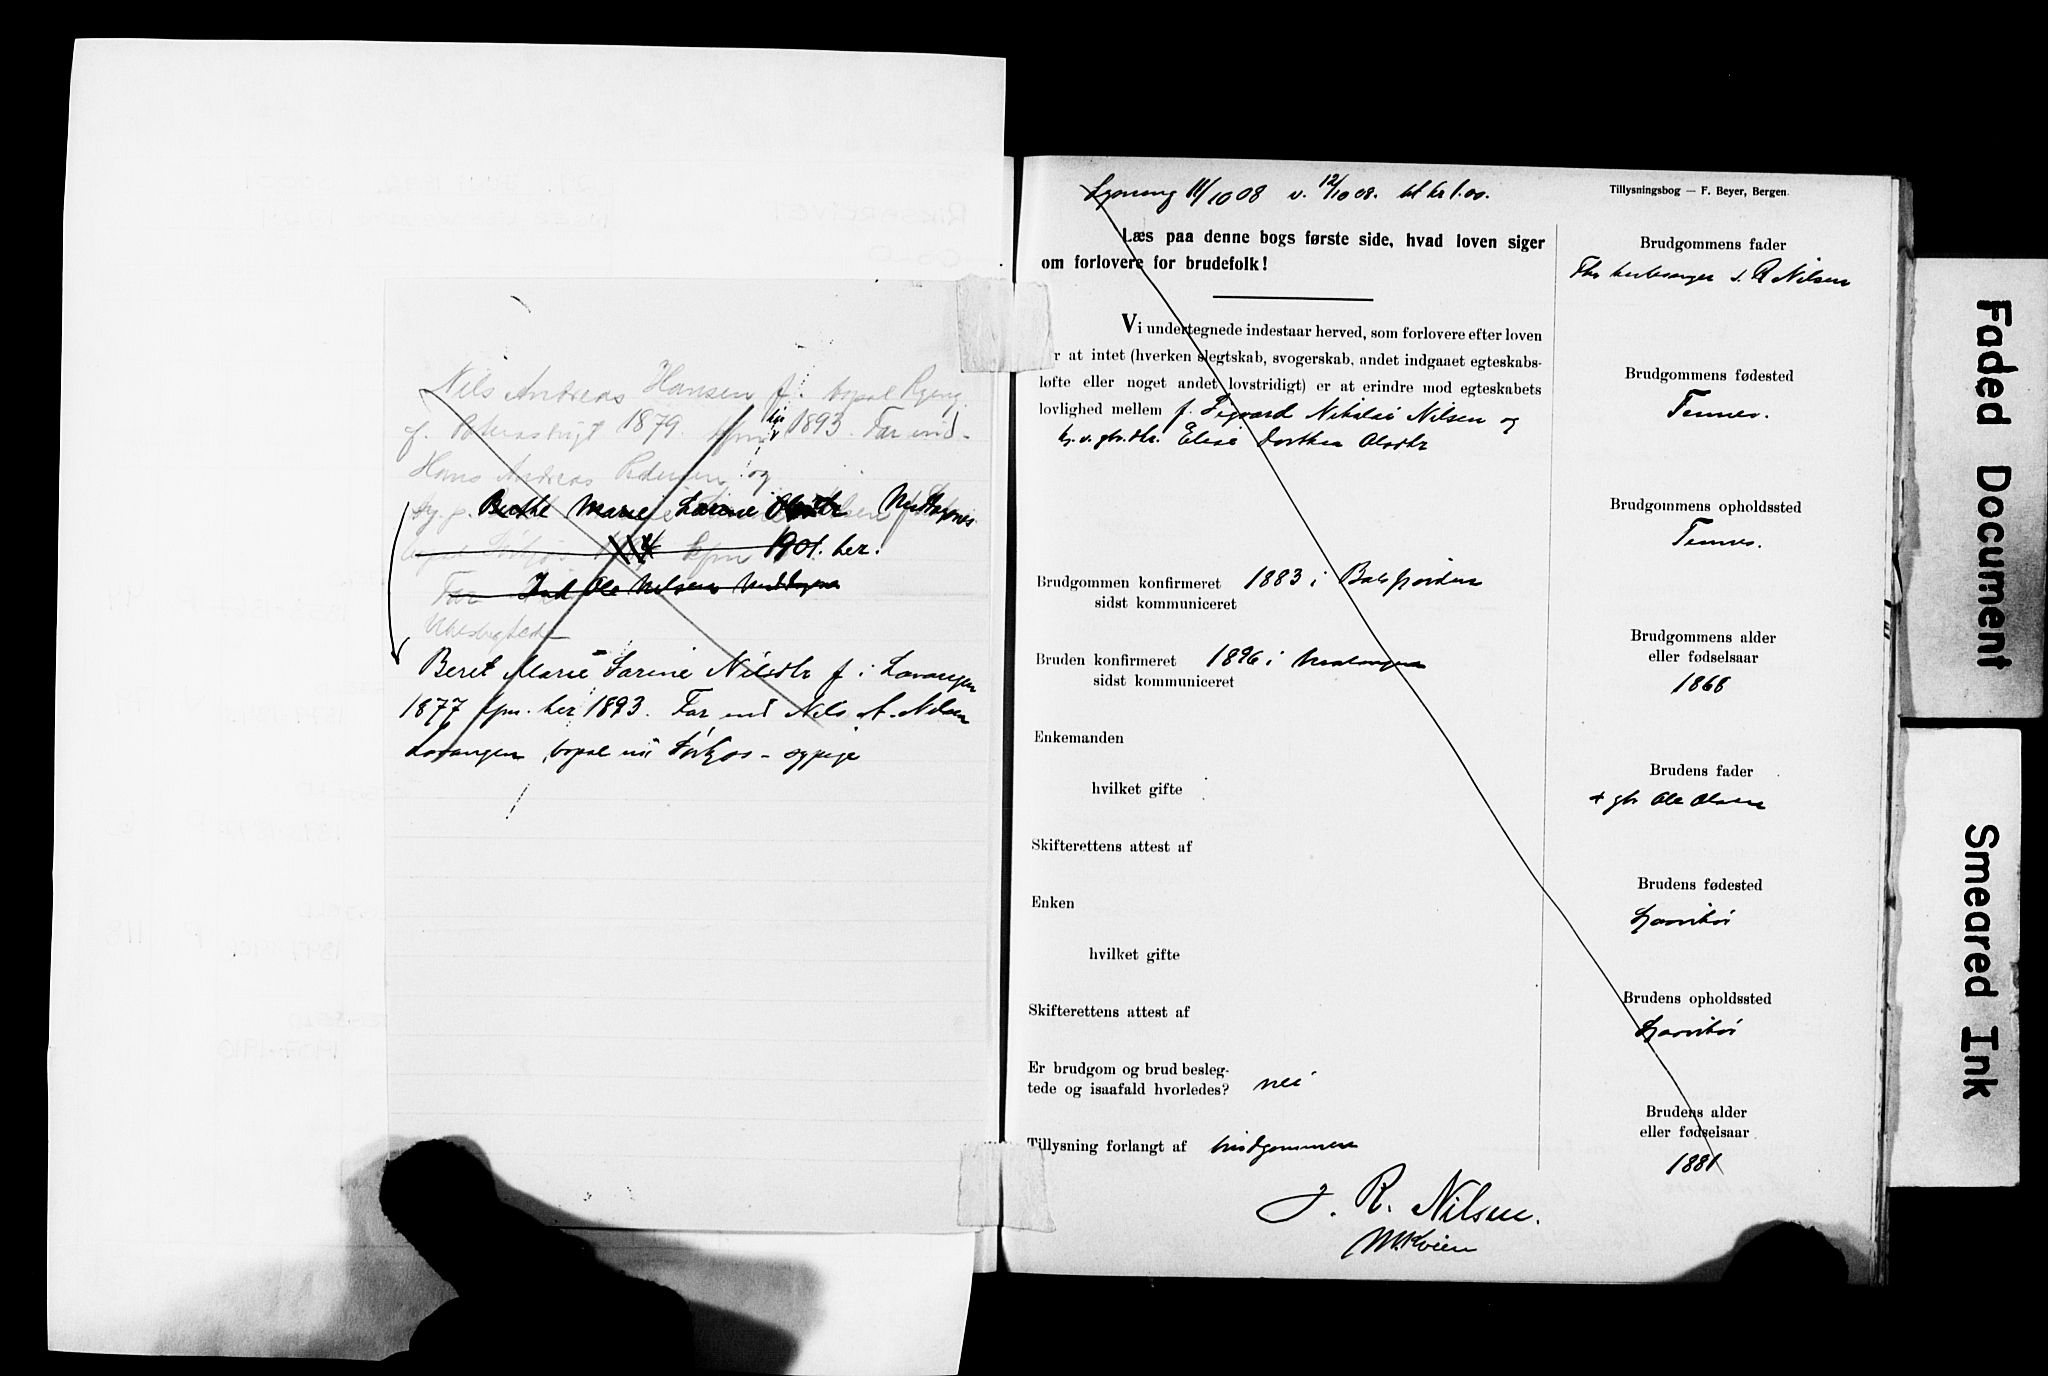 Nils Andreas Hansen f. bopæl
f. 1879. kfm 1893. Far ind.
Hans Andreas Pedersen og
Berthe Marie Larine
1901. her.
Far Ind Ole Nilsen
Ubeslægtede
Beret Marie Sarine Nilsdtr f. i Lavangen
1877 kfm. her 1893. Far ind Nils A. Nilsen
Lavangen, bopæl nu - sypige
Lysning 11/10 08 v. 12/10 08. bet kr 1.00.
Læs paa denne bogs første side, hvad loven siger
om forlovere for brudefolk!
Vi undertegnede indestaar herved, som forlovere efter loven
at intet (hverken slegtskab, svogerskab, andet indgaaet egteskabs-
løfte eller noget andet lovstridigt) er at erindre mod egteskabets
lovlighed mellem f. Sigvard Nikolai Nilsen og
Elise Dorthea Olsdtr
Brudgommen konfirmeret 1883 i Balsfjorden
sidst kommuniceret
Bruden konfirmeret 1896 i Malangen
sidst kommuniceret
Enkemanden
hvilket gifte
Skifterettens attest af
Enken
hvilket gifte
Skifterettens attest af
Er brudgom og brud besleg-
tede og isaafald hvorledes? nei
Tillysning forlangt af brudgommen
J. R. Nilsen.
M. Kvien
Tillysningsbog — F. Beyer, Bergen.
Brudgommens fader
kirkesanger J. R Nilsen
Brudgommens fødested
Tennes.
Brudgommens opholdssted
Tennes.
Brudgommens alder
eller fødselsaar
1868
Brudens fader
+ gbr Ole Olsen
Brudens fødested
Brudens opholdssted
Brudens alder
eller fødselsaar
1881
Faded Document
Smeared Ink